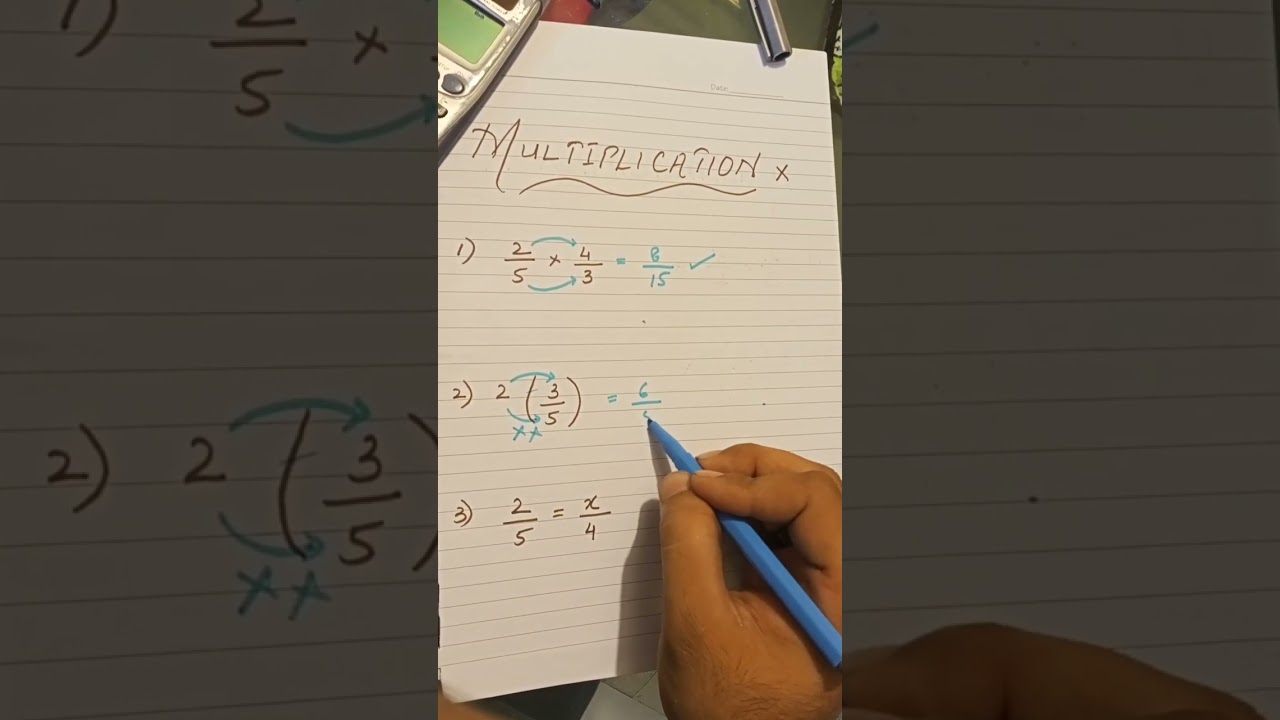 Date:
MULTIPLICATION ×
1) 2/5 × 4/3 = 8/15 ✓
2) 2 (3/5) = 6/5
×× 
3) 2/5 = x/4